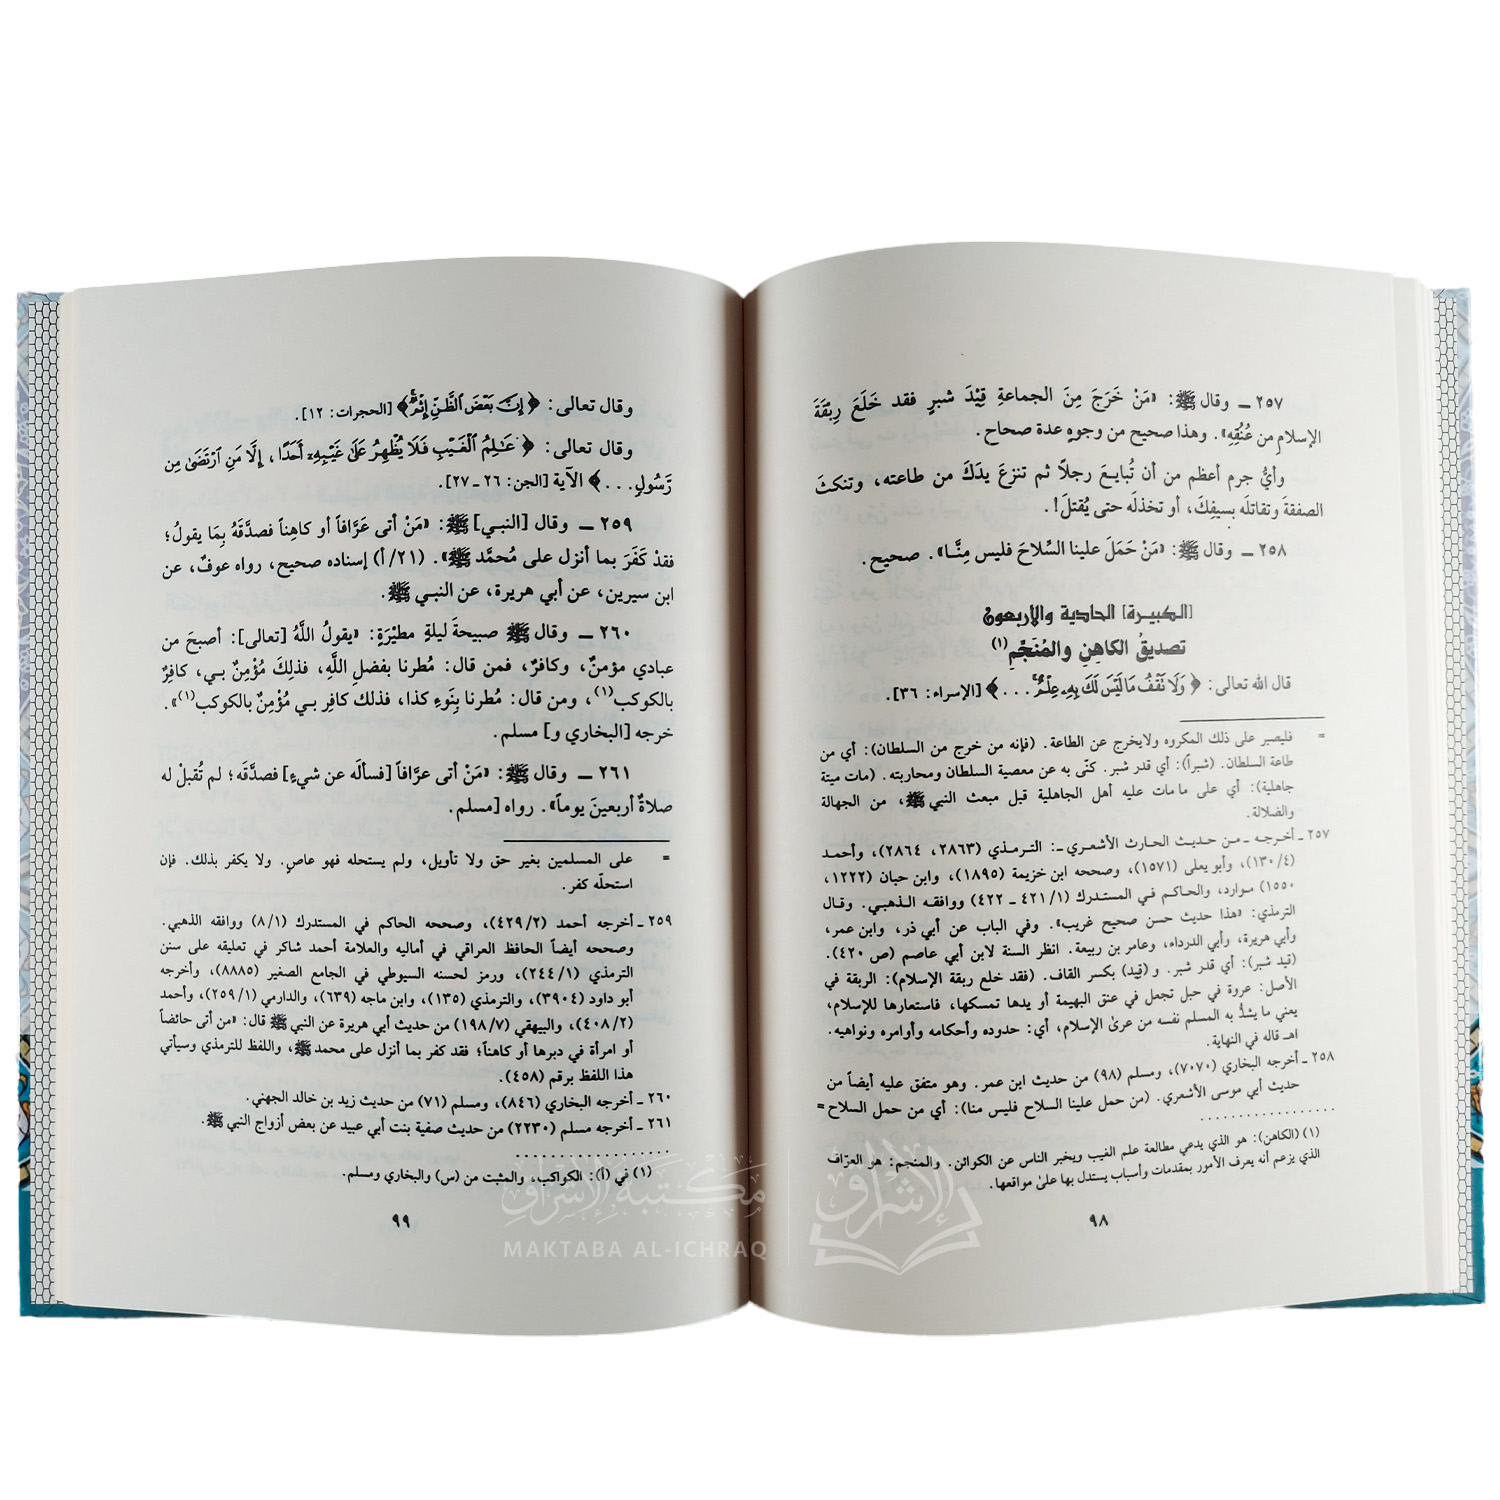 ٢٥٧ ـ وقال ﷺ: «مَنْ خَرَجَ مِنَ الجماعةِ قِيْدَ شبرٍ فقد خَلَعَ رِبْقَةَ
الإسلامِ من عُنُقِهِ». وهذا صحيح من وجوهٍ عدة صحاح.
وأيُّ جرم أعظم من أن تُبايـعَ رجلاً ثم تنزعَ يدَكَ من طاعته، وتنكثَ
الصفقةَ وتقاتلَه بسيفِكَ، أو تخذلَه حتى يُقتلَ!.
٢٥٨ ـ وقال ﷺ: «مَنْ حَمَلَ علينا السِّلاحَ فليس مِنَّـا». صحيح.
[الكبيرة] الحادية والأربعون
تصديقُ الكاهِنِ والمُنَجِّمِ(١)
قال الله تعالى: ﴿ وَلَا تَقْفُ مَا لَيْسَ لَكَ بِهِۦ عِلْمٌ ... ﴾ [الإسراء: ٣٦].
= فليصبر على ذلك المكروه ولايخرج عن الطاعة. (فإنه من خرج من السلطان): أي من
طاعة السلطان. (شبراً): أي قدر شبر. كنّى به عن معصية السلطان ومحاربته. (مات ميتة
جاهلية): أي على مامات عليه أهل الجاهلية قبل مبعث النبي ﷺ، من الجهالة
والضلالة.
٢٥٧ ـ أخرجـه ـ مـن حديـث الحارث الأشعـري ـ: التـرمذي (٢٨٦٣، ٢٨٦٤)، وأحمـد
(١٣٠/٤)، وأبو يعلى (١٥٧١)، وصححه ابن خزيمة (١٨٩٥)، وابن حبان (١٢٢٢،
١٥٥٠) موارد، والحاكـم فـي المستدرك (٤٢١/١ ـ ٤٢٢) ووافقـه الـذهبي. وقال
الترمذي: «هذا حديث حسن صحيح غريب». وفي الباب عن أبي ذر، وابن عمر،
وأبي هريرة، وأبي الدرداء، وعامر بن ربيعة. انظر السنة لابن أبي عاصم (ص ٤٢٠).
(قيد شبر): أي قدر شبر. و(قِيد) بكسر القاف. (فقد خلع ربقة الإسلام): الربقة في
الأصل: عروة في حبل تجعل في عنق البهيمة أو يدها تمسكها، فاستعارها للإسلام،
يعني ما يشدُّ به المسلم نفسه من عرىٰ الإسلام، أي: حدوده وأحكامه وأوامره ونواهيه.
اهـ قاله في النهاية.
٢٥٨ ـ أخرجه البخاري (٧٠٧٠)، ومسلم (٩٨) من حديث ابن عمر. وهو متفق عليه أيضاً من
حديث أبي موسى الأشعري. (من حمل علينا السلاح فليس منا): أي من حمل السلاح =
(١) (الكاهن): هو الذي يدعي مطالعة علم الغيب ويخبر الناس عن الكوائن. والمنجم: هو العرّاف
الذي يزعم أنه يعرف الأمور بمقدمات وأسباب يستدل بها علىٰ مواقعها.
٩٨
وقال تعالى: ﴿ إِنَّ بَعْضَ ٱلظَّنِّ إِثْمٌ ﴾ [الحجرات: ١٢].
وقال تعالى: ﴿ عَالِمُ ٱلْغَيْبِ فَلَا يُظْهِرُ عَلَىٰ غَيْبِهِۦ أَحَدًا، إِلَّا مَنِ ٱرْتَضَىٰ مِن
رَّسُولٍ...﴾ الآية [الجن: ٢٦ ـ ٢٧].
٢٥٩ ـ وقال [النبـي] ﷺ: «مَنْ أتى عَرَّافاً أو كاهِناً فصدَّقَهُ بِمَا يقولُ؛
فقدْ كَفَرَ بما أنزل على مُحمَّد ﷺ». (٢١/أ) إسناده صحيح، رواه عوفٌ، عن
ابن سيرين، عن أبي هريرة، عن النبـي ﷺ.
٢٦٠ ـ وقال ﷺ صبيحةَ ليلةٍ مطيْرَةٍ: «يقولُ اللَّهُ [تعالى]: أصبحَ من
عبادي مؤمنٌ، وكافرٌ، فمن قال: مُطرنا بفضلِ اللَّهِ، فذلِكَ مُؤْمِنٌ بـي، كافِرٌ
بالكوكب(١)، ومن قال: مُطرنا بِنَوءِ كذا، فذلك كافِر بـي مُؤْمِنٌ بالكوكب(١)».
خرجه [البخاري و] مسلم.
٢٦١ ـ وقال ﷺ: «مَنْ أتى عرَّافاً [فسألَه عن شيءٍ] فصدَّقَه؛ لم تُقبلْ له
صلاةٌ أربعينَ يوماً». رواه [مسلم.
= على المسلمين بغير حق ولا تأويل، ولم يستحله فهو عاصٍ. ولا يكفر بذلك. فإن
استحلّه كفر.
٢٥٩ ـ أخرجه أحمد (٤٢٩/٢)، وصححه الحاكم في المستدرك (٨/١) ووافقه الذهبي.
وصححه أيضاً الحافظ العراقي في أماليه والعلامة أحمد شاكر في تعليقه على سنن
الترمذي (٢٤٤/١)، ورمز لحسنه السيوطي في الجامع الصغير (٨٨٨٥)، وأخرجه
أبو داود (٣٩٠٤)، والترمذي (١٣٥)، وابن ماجه (٦٣٩)، والدارمي (٢٥٩/١)، وأحمد
(٤٠٨/٢)، والبيهقي (١٩٨/٧) من حديث أبي هريرة عن النبي ﷺ قال: «من أتى حائضاً
أو امرأة في دبرها أو كاهناً؛ فقد كفر بما أنزل على محمد ﷺ، واللفظ للترمذي وسيأتي
هذا اللفظ برقم (٤٥٨).
٢٦٠ ـ أخرجه البخاري (٨٤٦)، ومسلم (٧١) من حديث زيد بن خالد الجهني.
٢٦١ ـ أخرجه مسلم (٢٢٣٠) من حديث صفية بنت أبي عبيد عن بعض أزواج النبي ﷺ.
(١) في (أ): الكواكب، والمثبت من (س) والبخاري ومسلم.
٩٩
مكتبة الإشراق
MAKTABA AL-ICHRAQ
الإشراق